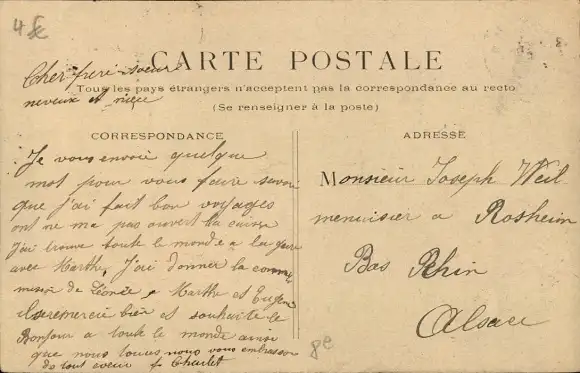 4 €
CARTE POSTALE
Tous les pays étrangers n'acceptent pas la correspondance au recto
(Se renseigner à la poste)
Cher frere soeur
neveux et niece
CORRESPONDANCE
Je vous envoie quelque
mot pour vous faire savoir
que j'ai fait bon voyages
ont ne ma pas ouvert la caisse
J'ai trouve toute le monde a la gare
avec Marthe, J'ai donner la commi
mision de Léonée, Marthe et Eugene
remercie bien et souhaite le
Bonjour a toute le monde ainsi
que nous tous nous vous embrasson
de tout coeur
Charlet
ADRESSE
Monsieur Joseph Weil
menuisier a Rosheim
Bas Rhin
Alsace
8e